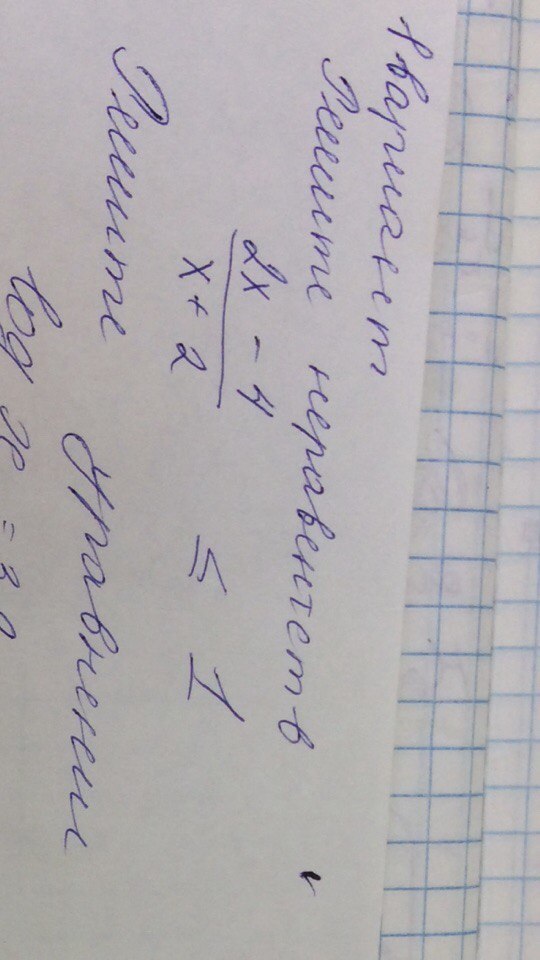 1 вариант
Решите неравенств
2x - 4
x + 2
≤ 1
Решите Уравнени
log x = 3